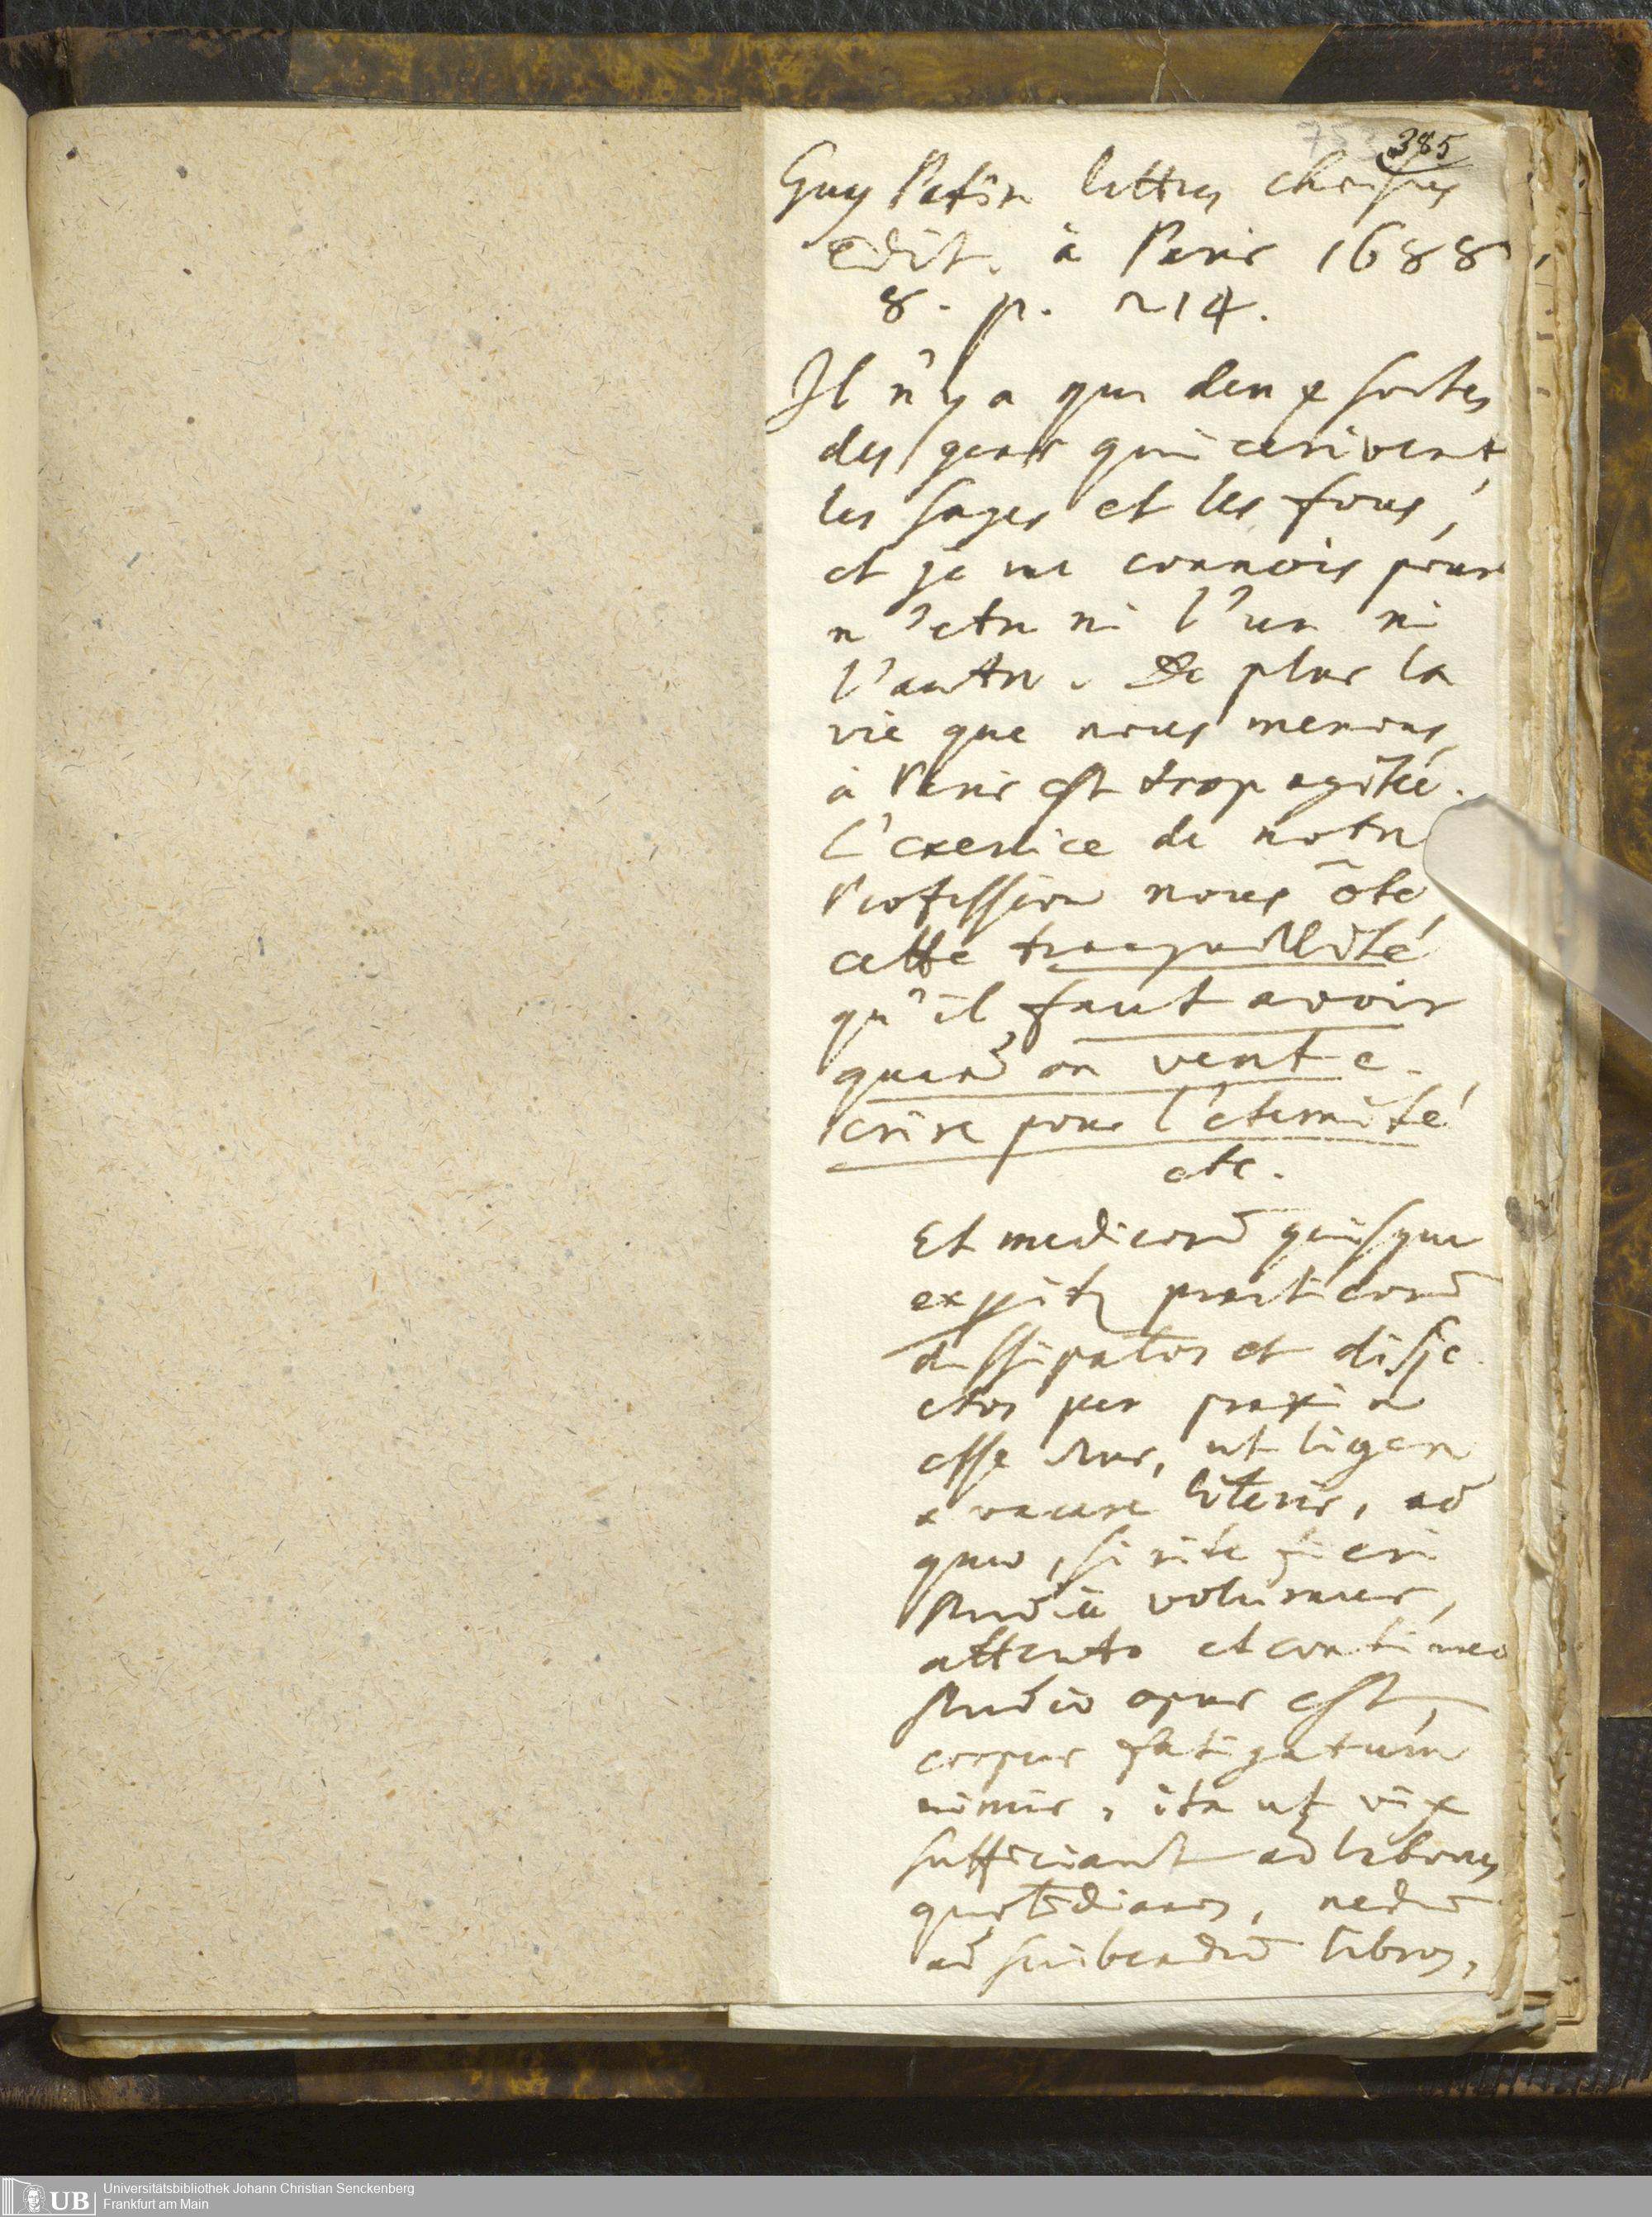 385
Guy Patin lettres choisies
edit. à Paris 1688
8. p. 214.
Il n'y a que deux sortes
des gens qui ecrivent,
les sages et les fous,
et je me connois pour
n'etre ni l'un ni
l'autre. De plus la
vie que nous menons
à Paris est trop agitée.
L'exercice de notre
Profession nous ôte
cette tranquillité
qu'il faut avoir
quand on veut e-
crire pour l'eternité
etc.
Et medicorū quisque
practicorū
dissipatos et disje
ctos per praxin
esse ut
vacare literis, ad
quas, si rite fieri
studia volumus,
attento et continuo
studio opus est,
corpus fatigatum
nimis, ita ut vix
sufficiant ad labores
quotidianos, nedū
ad scribendū libros,
UB
Universitätsbibliothek Johann Christian Senckenberg
Frankfurt am Main